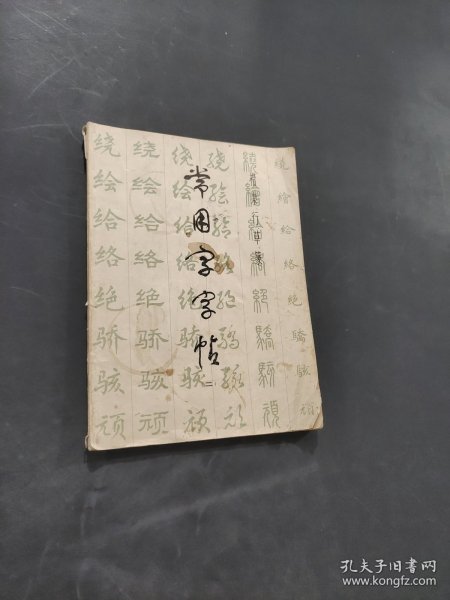 常用字字帖
二
绕绘给络绝骄骇顽
绕绘给络绝骄骇顽
绕绘给络绝骄骇顽
绕绘给络绝骄骇顽
繞繪給絡絕驕駭頑
孔夫子旧书网
www.kongfz.com